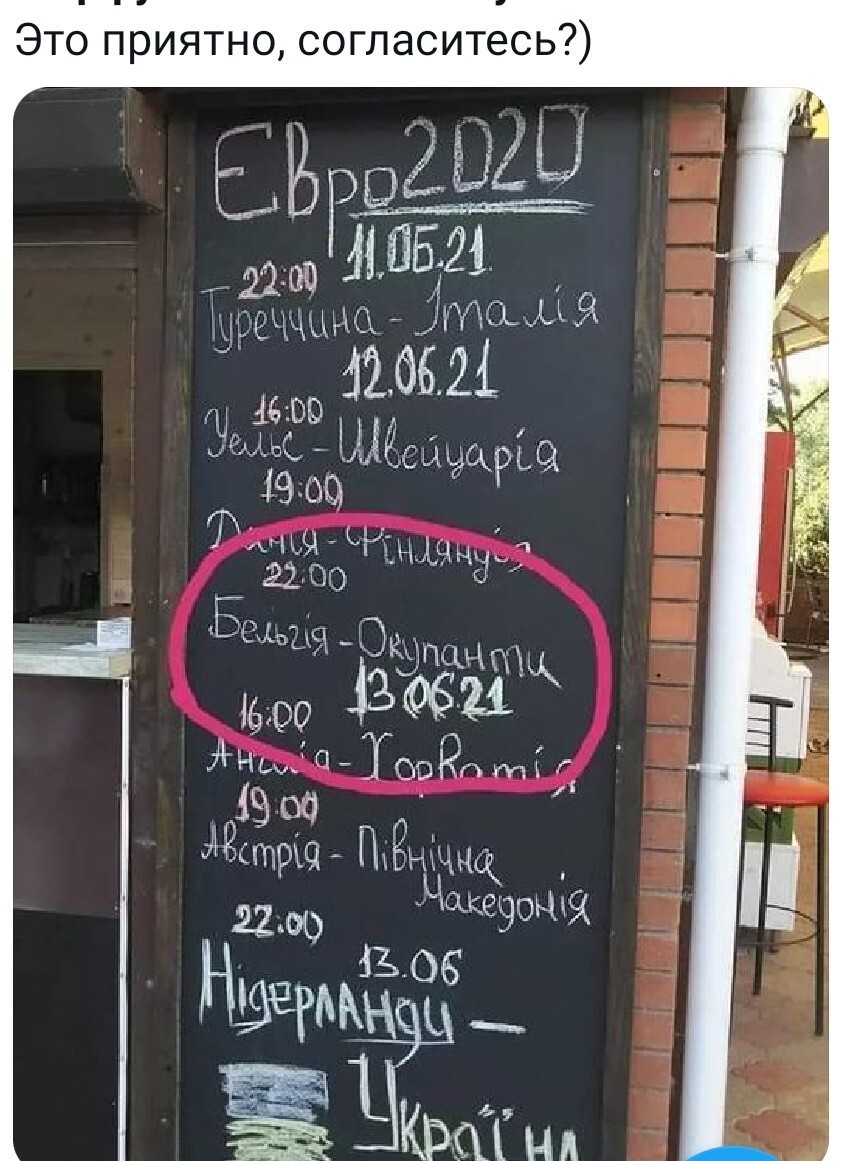 Это приятно, согласитесь?)
Євро2020
11.06.21.
22:00
Туреччина - Італія
12.06.21
16:00
Уельс - Швейцарія
19:00
Данія - Фінляндія
22:00
Бельгія - Окупанти
13.06.21
16:00
Англія - Хорватія
19:00
Австрія - Північна
Македонія
22:00
13.06
Нідерланди —
Україна